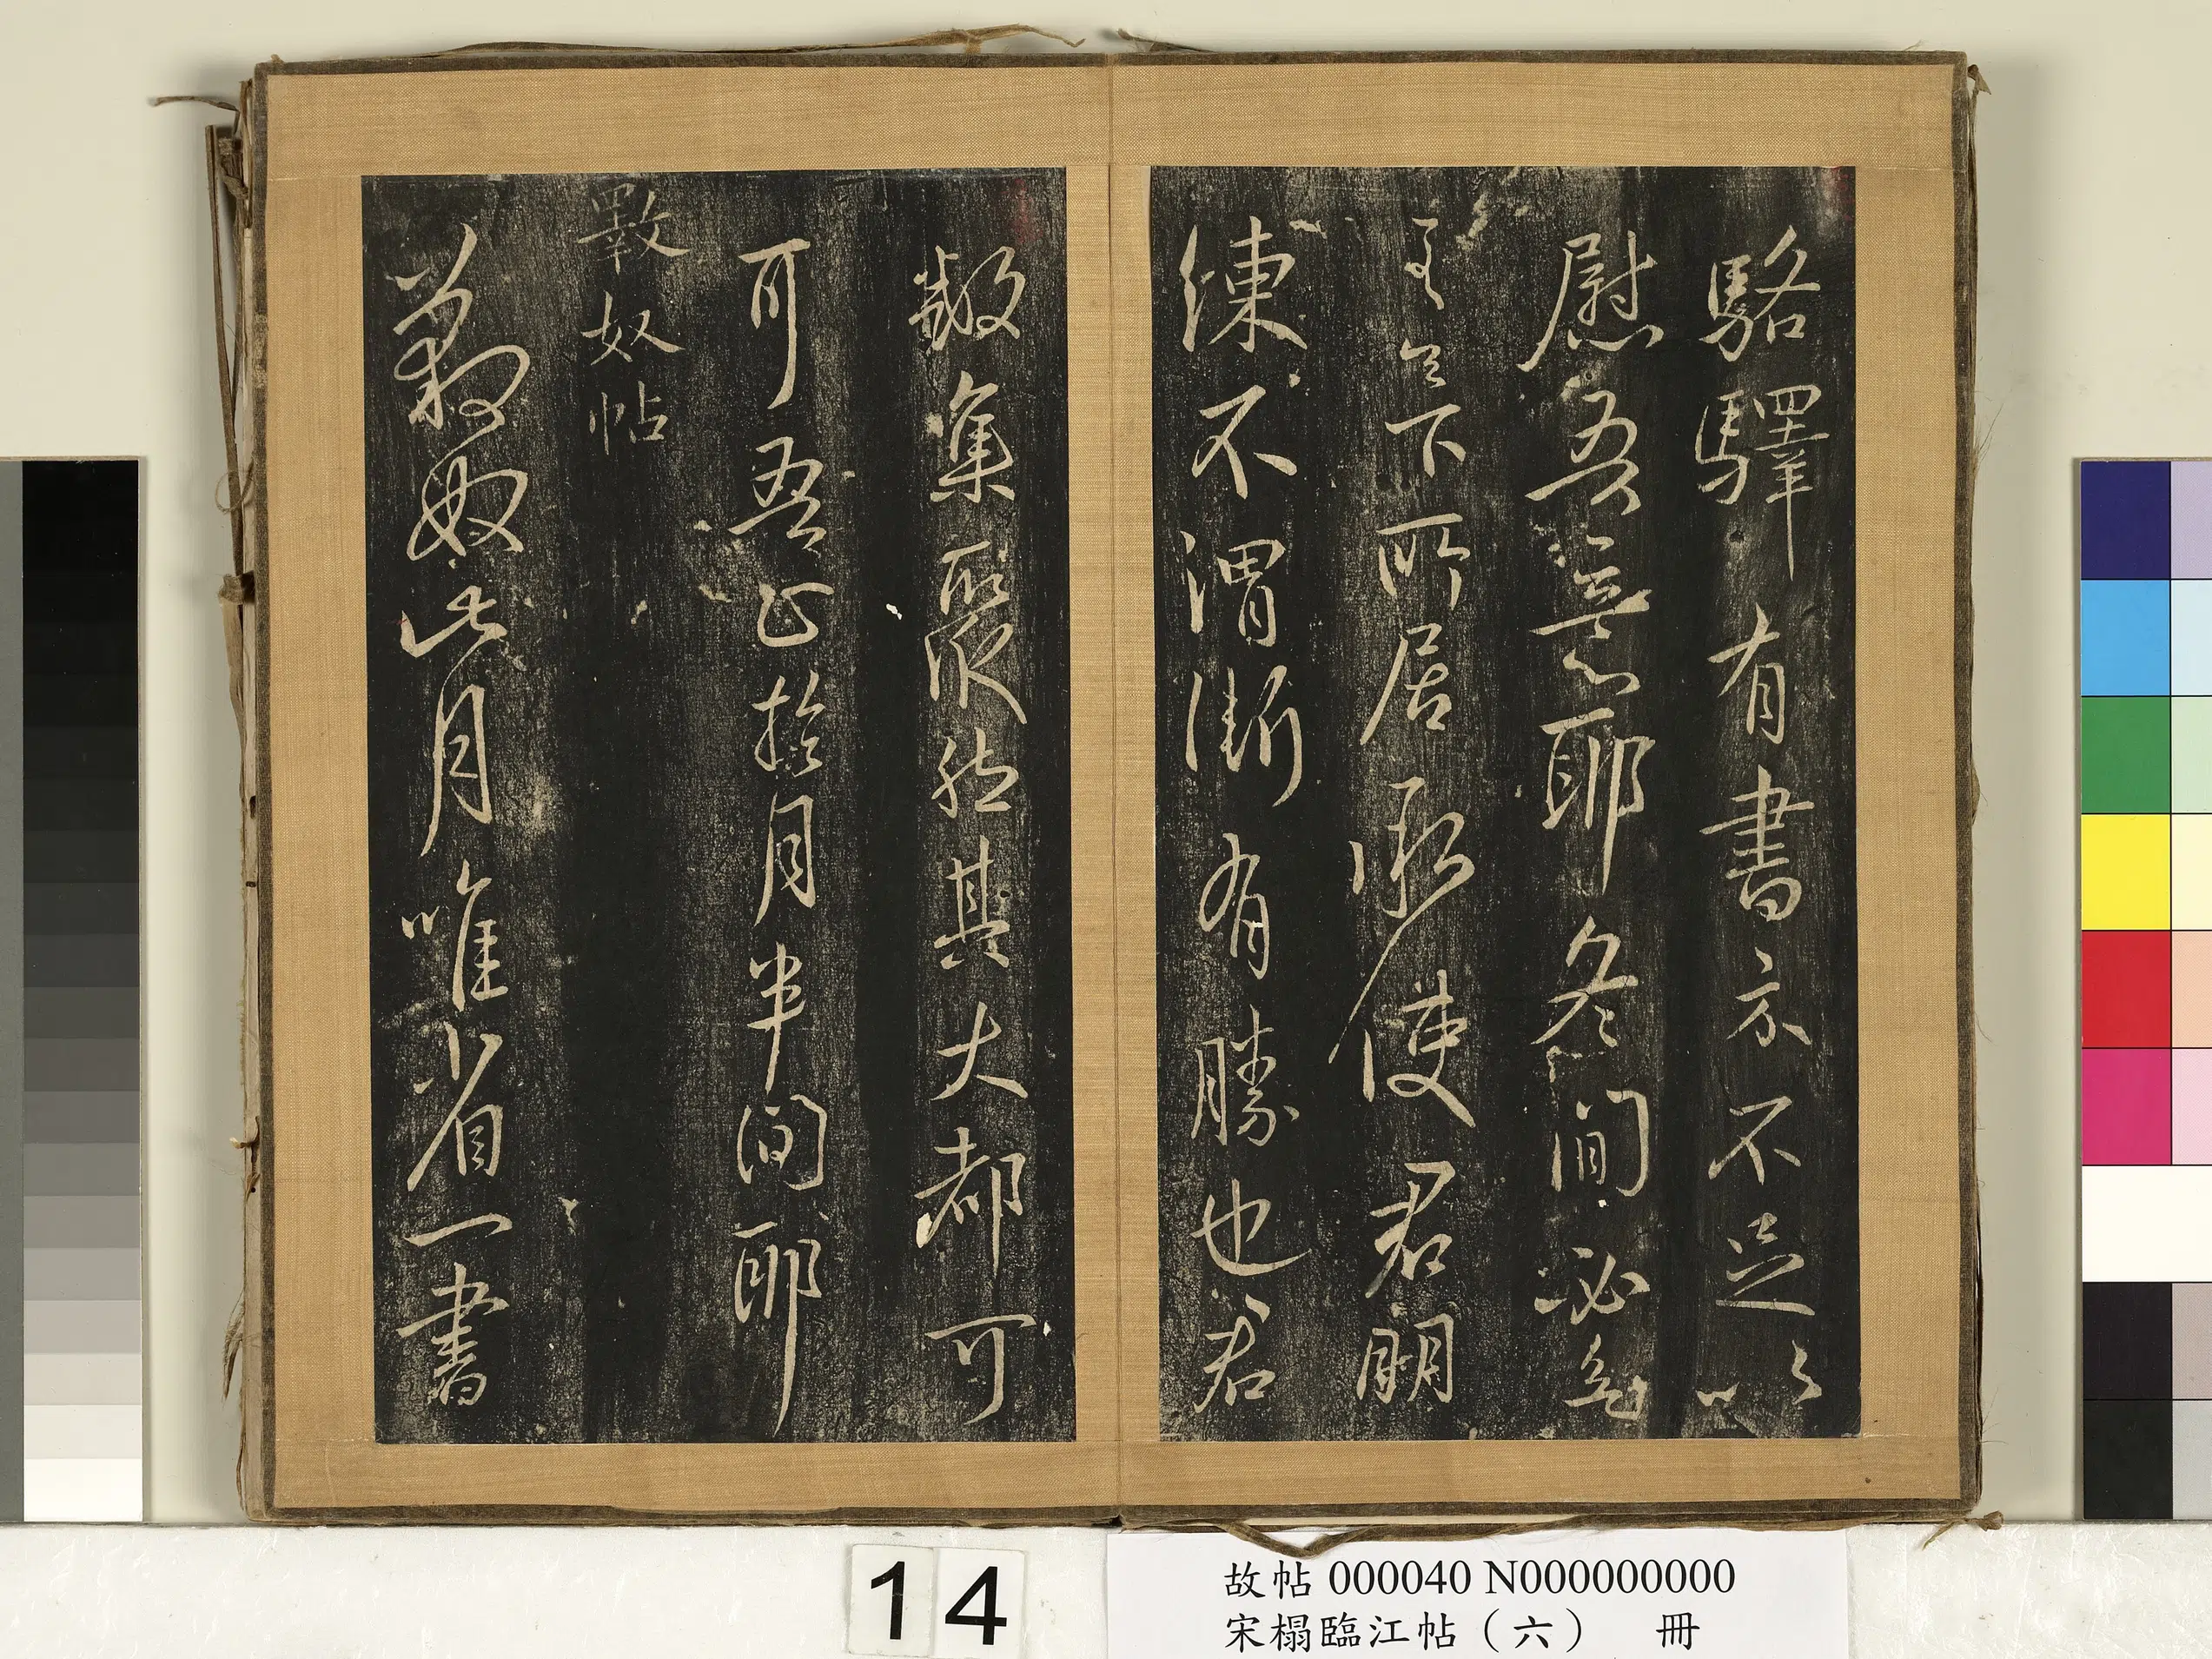 駱驛有書亦不足以
慰吾耶冬間必
至足下所居承使君明
練不謂漸有勝也君
數集聚然其大都可
可吾正於月半間耶
斁奴帖
斁奴此月唯省一書
14
故帖 000040 N000000000
宋榻臨江帖（六） 冊